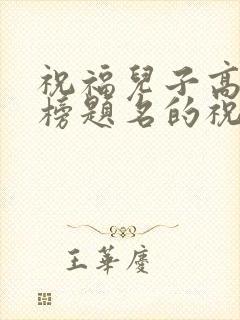 祝福兒子高
榜題名的祝
王華慶